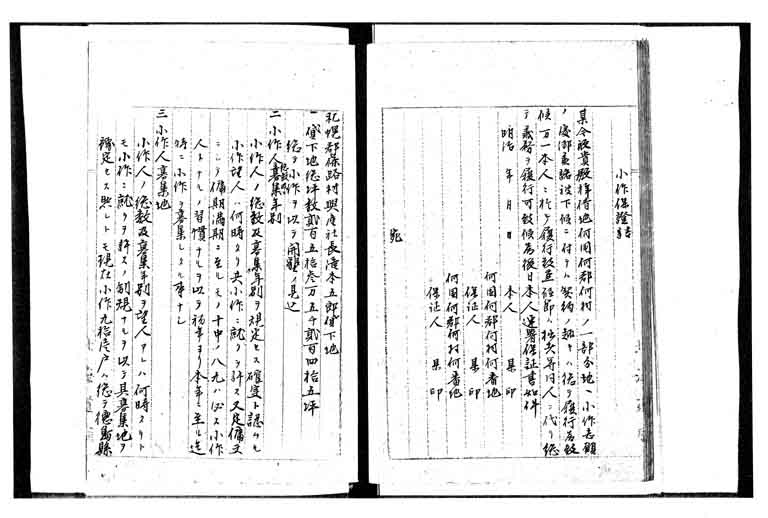 小作保證書
某今般貴殿拝借地何国何郡何村ノ一部分地ヘ小作志願
ノ処御承諾被下候ニ付テハ契約ノ趣キ総テ履行為致
候万一本人ニ於テ履行致兼候節ハ拙者等旧人ニ代リ総
テ義務ヲ履行可致候為後日本人連署保証書如件
明治 年 月 日 本人 某 印
何国何郡何村何番地
保証人 某 印
何国何郡何村何番地
保証人 某 印
宛
札幌郡篠路村興産社長滝本五郎貸下地
一 貸下地総坪数貳百五拾参万五千貳百四拾五坪
総テ小作ヲ以テ開墾ノ見込
二 小作人募集年割
小作人ノ総数及募集年割ヲ規定セス確実ト認ムル
小作望人ハ何時タリ共小作ニ就クヲ許ス又定傭夫
ニシテ傭期満期ニ至ルモノ十中ノ八九ハ必ス小作
人トナルノ習慣ナルヲ以テ初年ヨリ本年ニ至ル迄
特ニ小作ヲ募集シタル事ナシ
三 小作人募集地
小作人ノ総数及募集年割ヲ望人アレハ何時タリト
モ小作ニ就クヲ許スノ制規ナルヲ以テ其募集地ヲ
豫定セス然レトモ現在小作九拾戸ハ総テ徳島縣